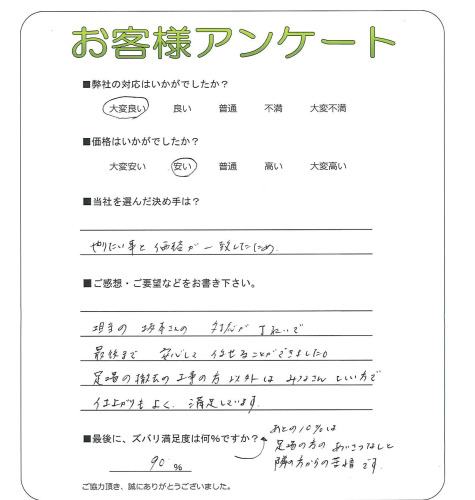 お客様アンケート
■弊社の対応はいかがでしたか？
大変良い 良い 普通 不満 大変不満
■価格はいかがでしたか？
大変安い 安い 普通 高い 大変高い
■当社を選んだ決め手は？
やりたい事と価格が一致したため．
■ご感想・ご要望などをお書き下さい。
担当の坂本さんの対応が丁ねいで
最後まで安心して任せることができました。
足場の撤去の工事の方以外はみなさんいい方で
仕上がりもよく、満足しています。
■最後に、ズバリ満足度は何%ですか？
90 %
あとの10%は
足場の方のあいさつなしと
隣の方からの苦情です。
ご協力頂き、誠にありがとうございました。